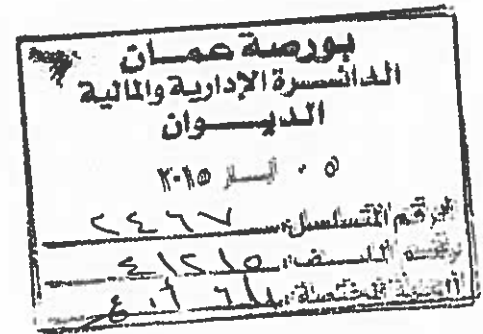 بورصة عمان
الدائرة الإدارية والمالية
الديوان
٠٥ أيار ٢٠١٥
الرقم المتسلسل: ٢٤٦٧
رقم الملف: ٤١٢١٥
الجهة المختصة: